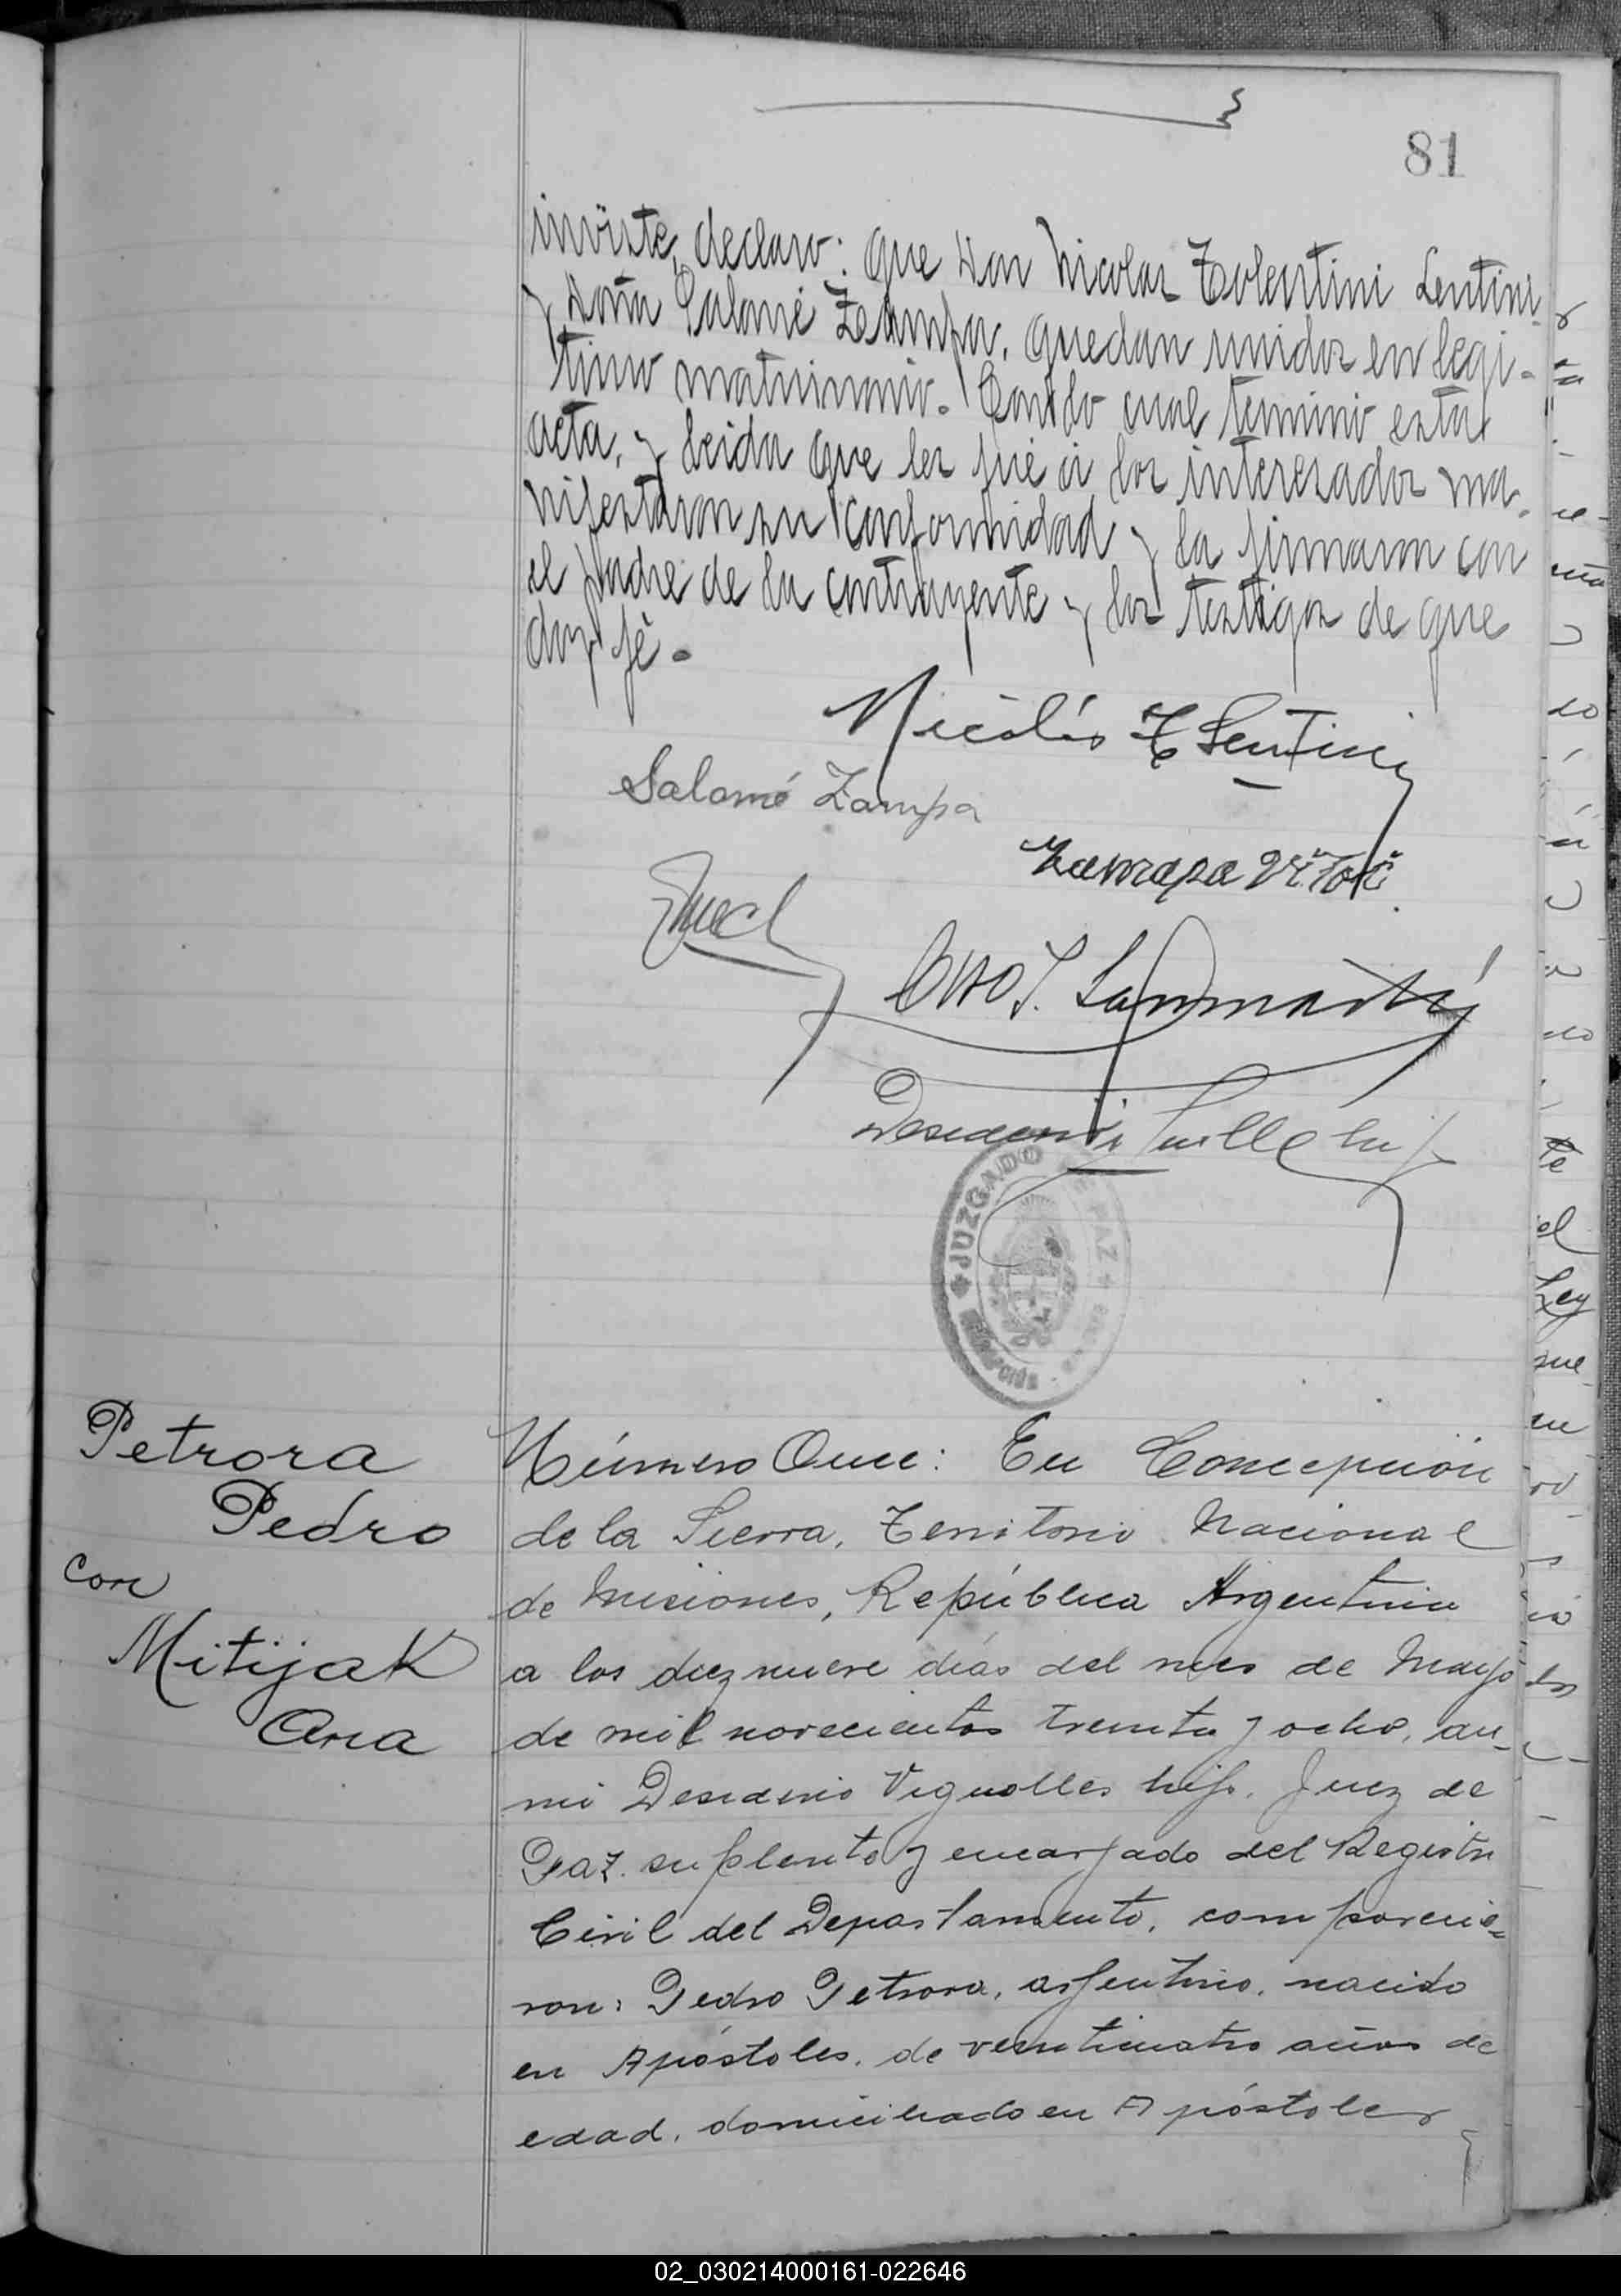 81
inviste, declaro: que Don Nicolas Tolentini Lentini
y Doña Salomé Zampa, quedan unidos en legi-
timo matrimonio. Con lo cual termino esta
acta, y leida que les fué á los interesados ma-
nifestaron su conformidad y la firmaron con
el padre de la contrayente y los testigos de que
doy fé.
Nicolás T Lentini
Salomé Zampa
Zampa
Otto S.
Desiderio hijo
JUZGADO DE PAZ
Petrora
Pedro
con
Mitijak
Ana
Número Once: En Concepción
de la Sierra, Territorio Nacional
de Misiones, República Argentina
a los diez nueve dias del mes de Mayo
de mil novecientos treinta y ocho, an-
mi Desiderio Vignolles hijo, Juez de
Paz suplente y encargado del Registro
Civil del Departamento, comparecie=
ron: Pedro Petrora, argentino, nacido
en Apóstoles, de veinticuatro años de
edad, domiciliado en Apóstoles
te
el
Ley
que
02_030214000161-022646